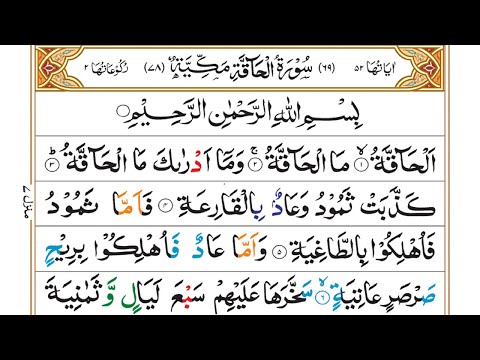 اٰیَاتُهَا ٥٢ (٦٩) سُوْرَةُ الْحَآقَّةِ مَکِّیَّةٌ (٧٨) رُکُوْعَاتُهَا ٢
بِسْمِ اللّٰهِ الرَّحْمٰنِ الرَّحِیْمِ
اَلْحَآقَّةُ ۙ﴿١﴾ مَا الْحَآقَّةُ ۚ﴿٢﴾ وَمَاۤ اَدْرٰىكَ مَا الْحَآقَّةُ ؕ﴿٣﴾
کَذَّبَتْ ثَمُوْدُ وَعَادٌۢ بِالْقَارِعَةِ ﴿٤﴾ فَاَمَّا ثَمُوْدُ
فَاُهْلِکُوْا بِالطَّاغِیَةِ ﴿٥﴾ وَاَمَّا عَادٌ فَاُهْلِکُوْا بِرِیْحٍ
صَرْصَرٍ عَاتِیَةٍ ۙ﴿٦﴾ سَخَّرَهَا عَلَیْهِمْ سَبْعَ لَیَالٍ وَّ ثَمٰنِیَةَ
منزل ٧